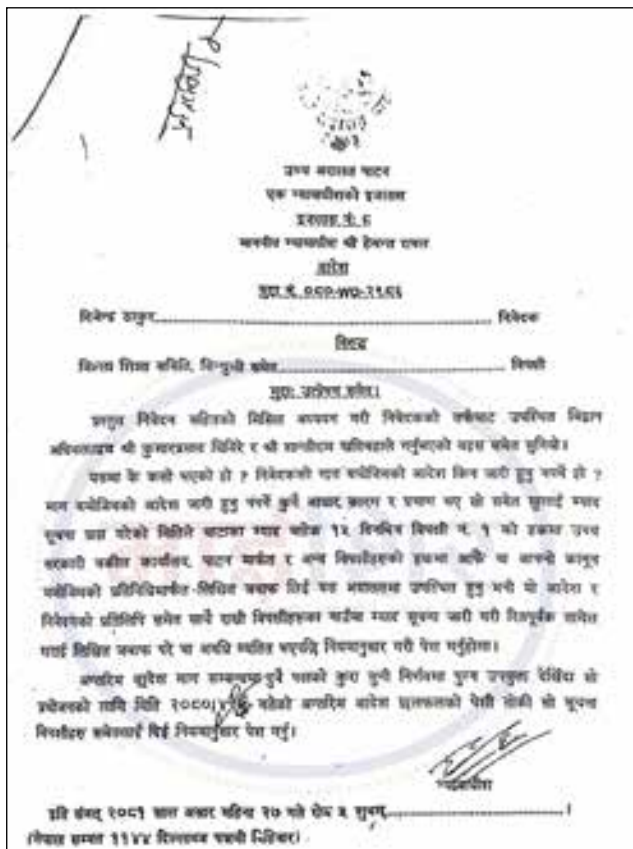 उच्च अदालत पाटन
एक न्यायाधीशको इजलास
इजलास नं. ६
माननीय न्यायाधीश श्री हेमन्त रावल
आदेश
मुद्दा नं. ०८०-WO-२१८६
ठाकुर निवेदक
विरुद्ध
जिल्ला शिक्षा समिति, सिन्धुली समेत विपक्षी
मुद्दाः उत्प्रेषण समेत।
प्रस्तुत निवेदन सहितको मिसिल अध्ययन गरी निवेदकको तर्फबाट उपस्थित विद्वान
श्री कुमारप्रसाद र श्री शान्तीराम गर्नुभएको बहस समेत सुनियो।
यसमा के कसो भएको हो ? निवेदकको माग बमोजिमको आदेश किन जारी हुनु नपर्ने हो ?
माग बमोजिमको आदेश जारी हुनु नपर्ने कुनै आधार, कारण र प्रमाण भए सो समेत खुलाई म्याद
सूचना प्राप्त भएको मितिले बाटाका म्याद बाहेक १५ दिनभित्र विपक्षी नं. १ को हकमा उच्च
सरकारी वकील कार्यालय, पाटन मार्फत र अन्य विपक्षीहरुको हकमा आफै वा आफ्नो कानून
बमोजिमको प्रतिनिधिमार्फत लिखित जवाफ लिई यस अदालतमा उपस्थित हुनु भनी यो आदेश र
निवेदनको प्रतिलिपि समेत साथै राखी विपक्षीहरुका नाउँमा म्याद सूचना जारी गरी रितपूर्वक तामेल
गराई लिखित जवाफ परे वा अवधि व्यतित भएपछि नियमानुसार गरी पेश गर्नुहोला।
अन्तरिम आदेश माग सम्बन्धमा दुवै पक्षको कुरा सुनी निर्णयमा पुग्न उपयुक्त देखिँदा सो
प्रयोजनको लागि मिति गतेको अन्तरिम आदेश छलफलको पेशी तोकी सो सूचना
विपक्षीहरु समेतलाई दिई नियमानुसार पेश गर्नु।
न्यायाधीश
इति संवत् २०८१ साल असार महिना २७ गते रोज ५ शुभम्
(नेपाल सम्वत ११४४ दिल्लागा